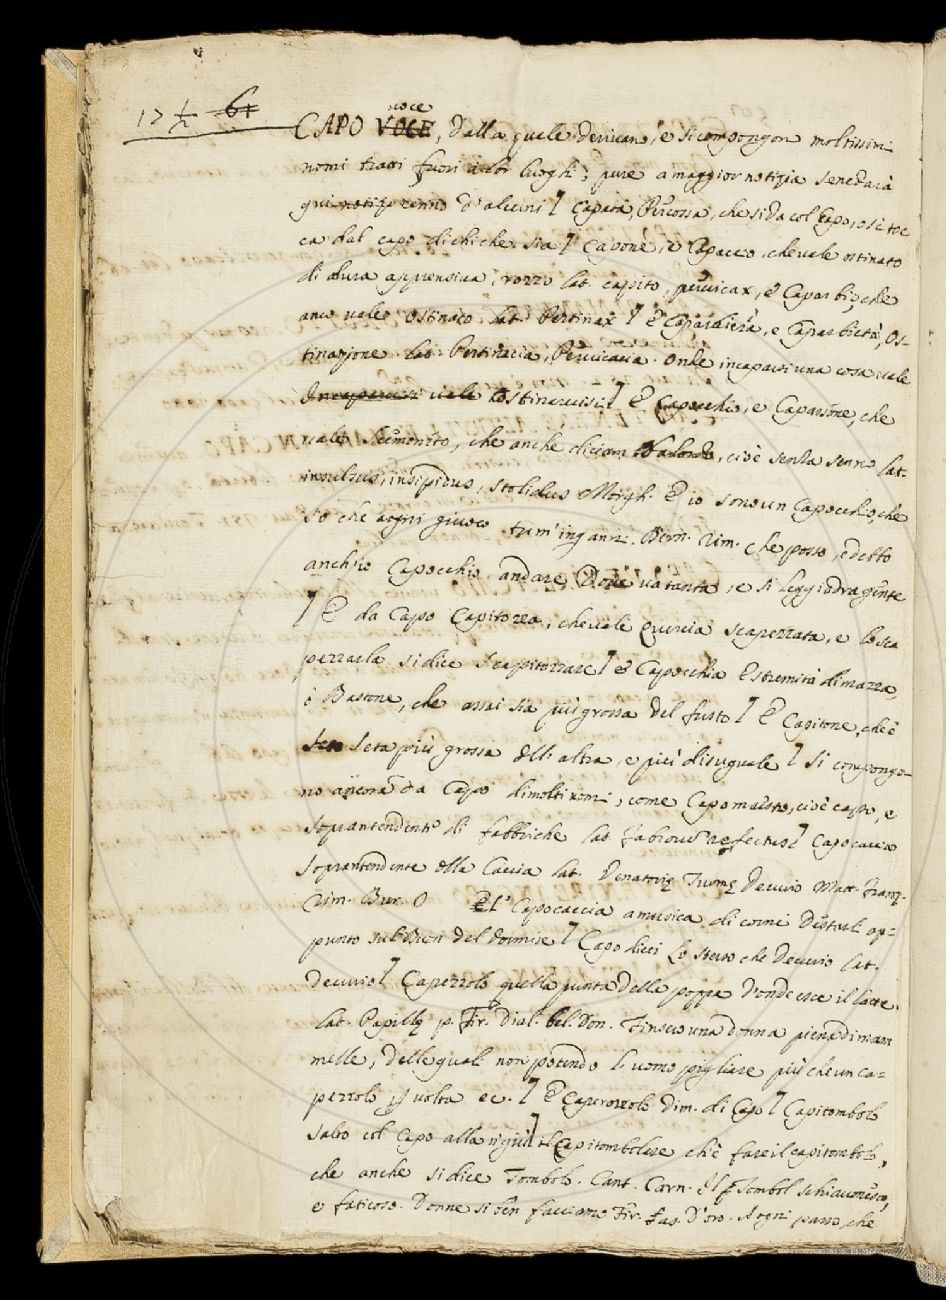 17 1/2 61
voce
CAPO VOCE, dalla quale derivan, e si compongon moltissimi
nomi tratti fuori a lor luoghi; pure a maggior notizia se ne darà
qui d'alcuni] Capata, Percossa, che si da col Capo, o si toc
ca dal capo di chi che sia] Capone, e Capaccio, che vale ostinato
di dura apprensiva, rozzo lat. capito, pervicax, e Caparbio, che
anco vale Ostinato lat. Pertinax] E Caparbieria, e Caparbietà, Os-
tinazione lat. Pertinacia, Pervicacia. Onde incaparsi una cosa vale
Incaparsi vale Ostinarvisi] E Capocchio, e Caparrone, che
vale Scimonito, che anche diciam Balordo, cioè senza senno lat.
insulsus, insipidus, stolidus Morgh. E io sono un Capocchio, che
so che a ogni giuoco tu m'inganni. Bern. rim. che posso, e debbo
anch'io Capocchio andare Dove va tanta, e si leggiadra gente
] E da Capo Capitozza, che vale Quercia scapezzata, e lo sca
pezzarla si dice Scapitozzare] e Capocchia Estremità di mazza,
ò Bastone, che assai sia più grossa del fusto] E Capitone, che è
Seta Seta più grossa dell'altra, e più disuguale] Si compongo-
no ancora da Capo di molti nomi, come Capomaestro, cioè capo, e
soprantendente di fabbriche lat. Capocaccia
Soprantendente della Caccia lat. Decurio Matt. Franz.
rim. Bur. O El' Capocaccia a musica di corni Disturb ap-
punto sul buon del dormire] Capo dieci Lo stesso che Decurio lat.
decurio] Capezzolo quella punta della poppa donde esce il latte.
lat. Papilla Fir. Dial. bel. Don. Finsero una donna piena di mam
melle, delle quali non potendo l'uomo pigliare più che un ca-
pezzolo p volta ec.] E Caperozzolo dim. di Capo] Capitombolo
Salto col Capo all'ingiù] E Capitombolare ch'è fare il capitombolo,
che anche si dice Tombolo. Cant. Carn. E'l Tombol schiavonesco,
e faticoso. Donne si ben facciamo Fir. As. D'oro. A ogni passo, che